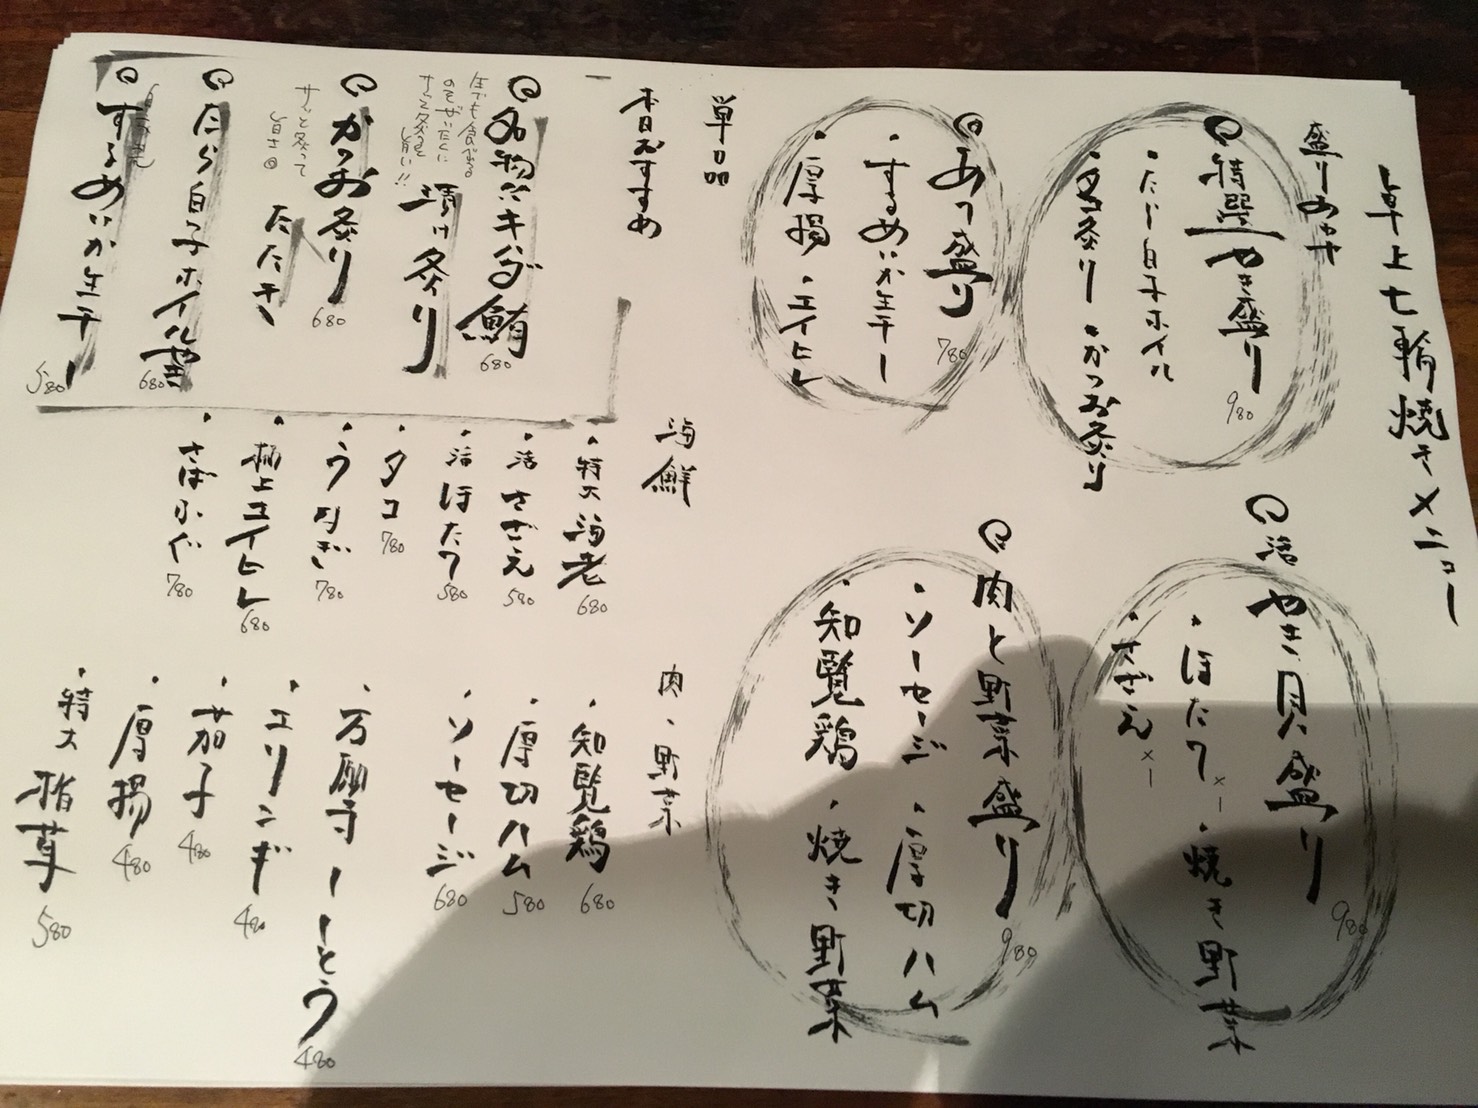 卓上七輪焼きメニュー
盛りあわせ
特選やき盛り 980
・たら白子ホイル
・かつお炙り
活 やき貝盛り 980
・ほたて ×一
・焼き野菜
・さざえ ×一
あて盛り 780
・するめいか生干し
・厚揚
・エイヒレ
肉と野菜盛り 980
・ソーセージ
・厚切ハム
・知覧鶏
・焼き野菜
単品
本日おすすめ
名物バキ
鮪
漬け炙り 680
生でも食べる
のをぜいたくに
サッと炙る
旨い!!
かつお炙り
たたき 680
サッと炙って
旨さ
たら白子ホイル焼 680
するめいか生干し 580
海鮮
・特大海老 680
・活さざえ 580
・活ほたて 580
・タコ 780
・うなぎ 780
・極上エイヒレ 680
・さばふぐ 780
肉・野菜
・知覧鶏 680
・厚切ハム 580
・ソーセージ 680
・万願寺とう 480
・エリンギ 480
・茄子 480
・厚揚 480
・特大椎茸 580